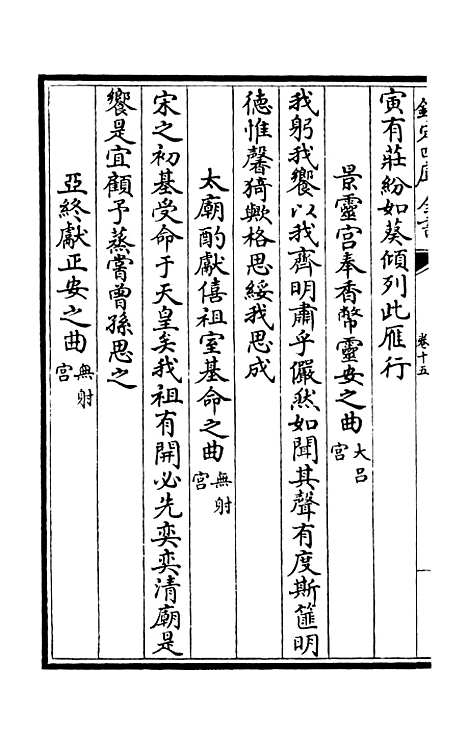 欽定四庫全書
卷十五
寅有莊紛如葵傾列此雁行
景靈宮奉香幣靈安之曲大呂宮
我躬我饗以我齊明肅乎儼然如聞其聲有度斯簠明
德惟馨猗歟格思綏我思成
太廟酌獻僖祖室基命之曲無射宮
宋之初基受命于天皇矣我祖有開必先奕奕清廟是
饗是宜顧予蒸嘗曾孫思之
亞終獻正安之曲無射宮